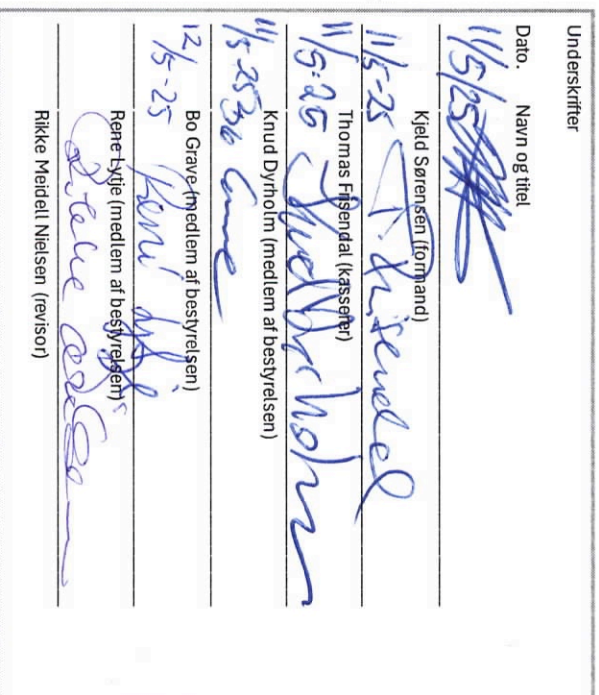 Underskrifter
Dato. Navn og titel
11/5/25
Kjeld Sørensen (formand)
11/5-25 T. Frisendal
Thomas Frisendal (kasserer)
11/5-25 Knud Dyrholm
Knud Dyrholm (medlem af bestyrelsen)
11/5-25 Bo Grave
Bo Grave (medlem af bestyrelsen)
12/5-25 René Lytje
Rene Lytje (medlem af bestyrelsen)
Rikke Meidell Nielsen (revisor)